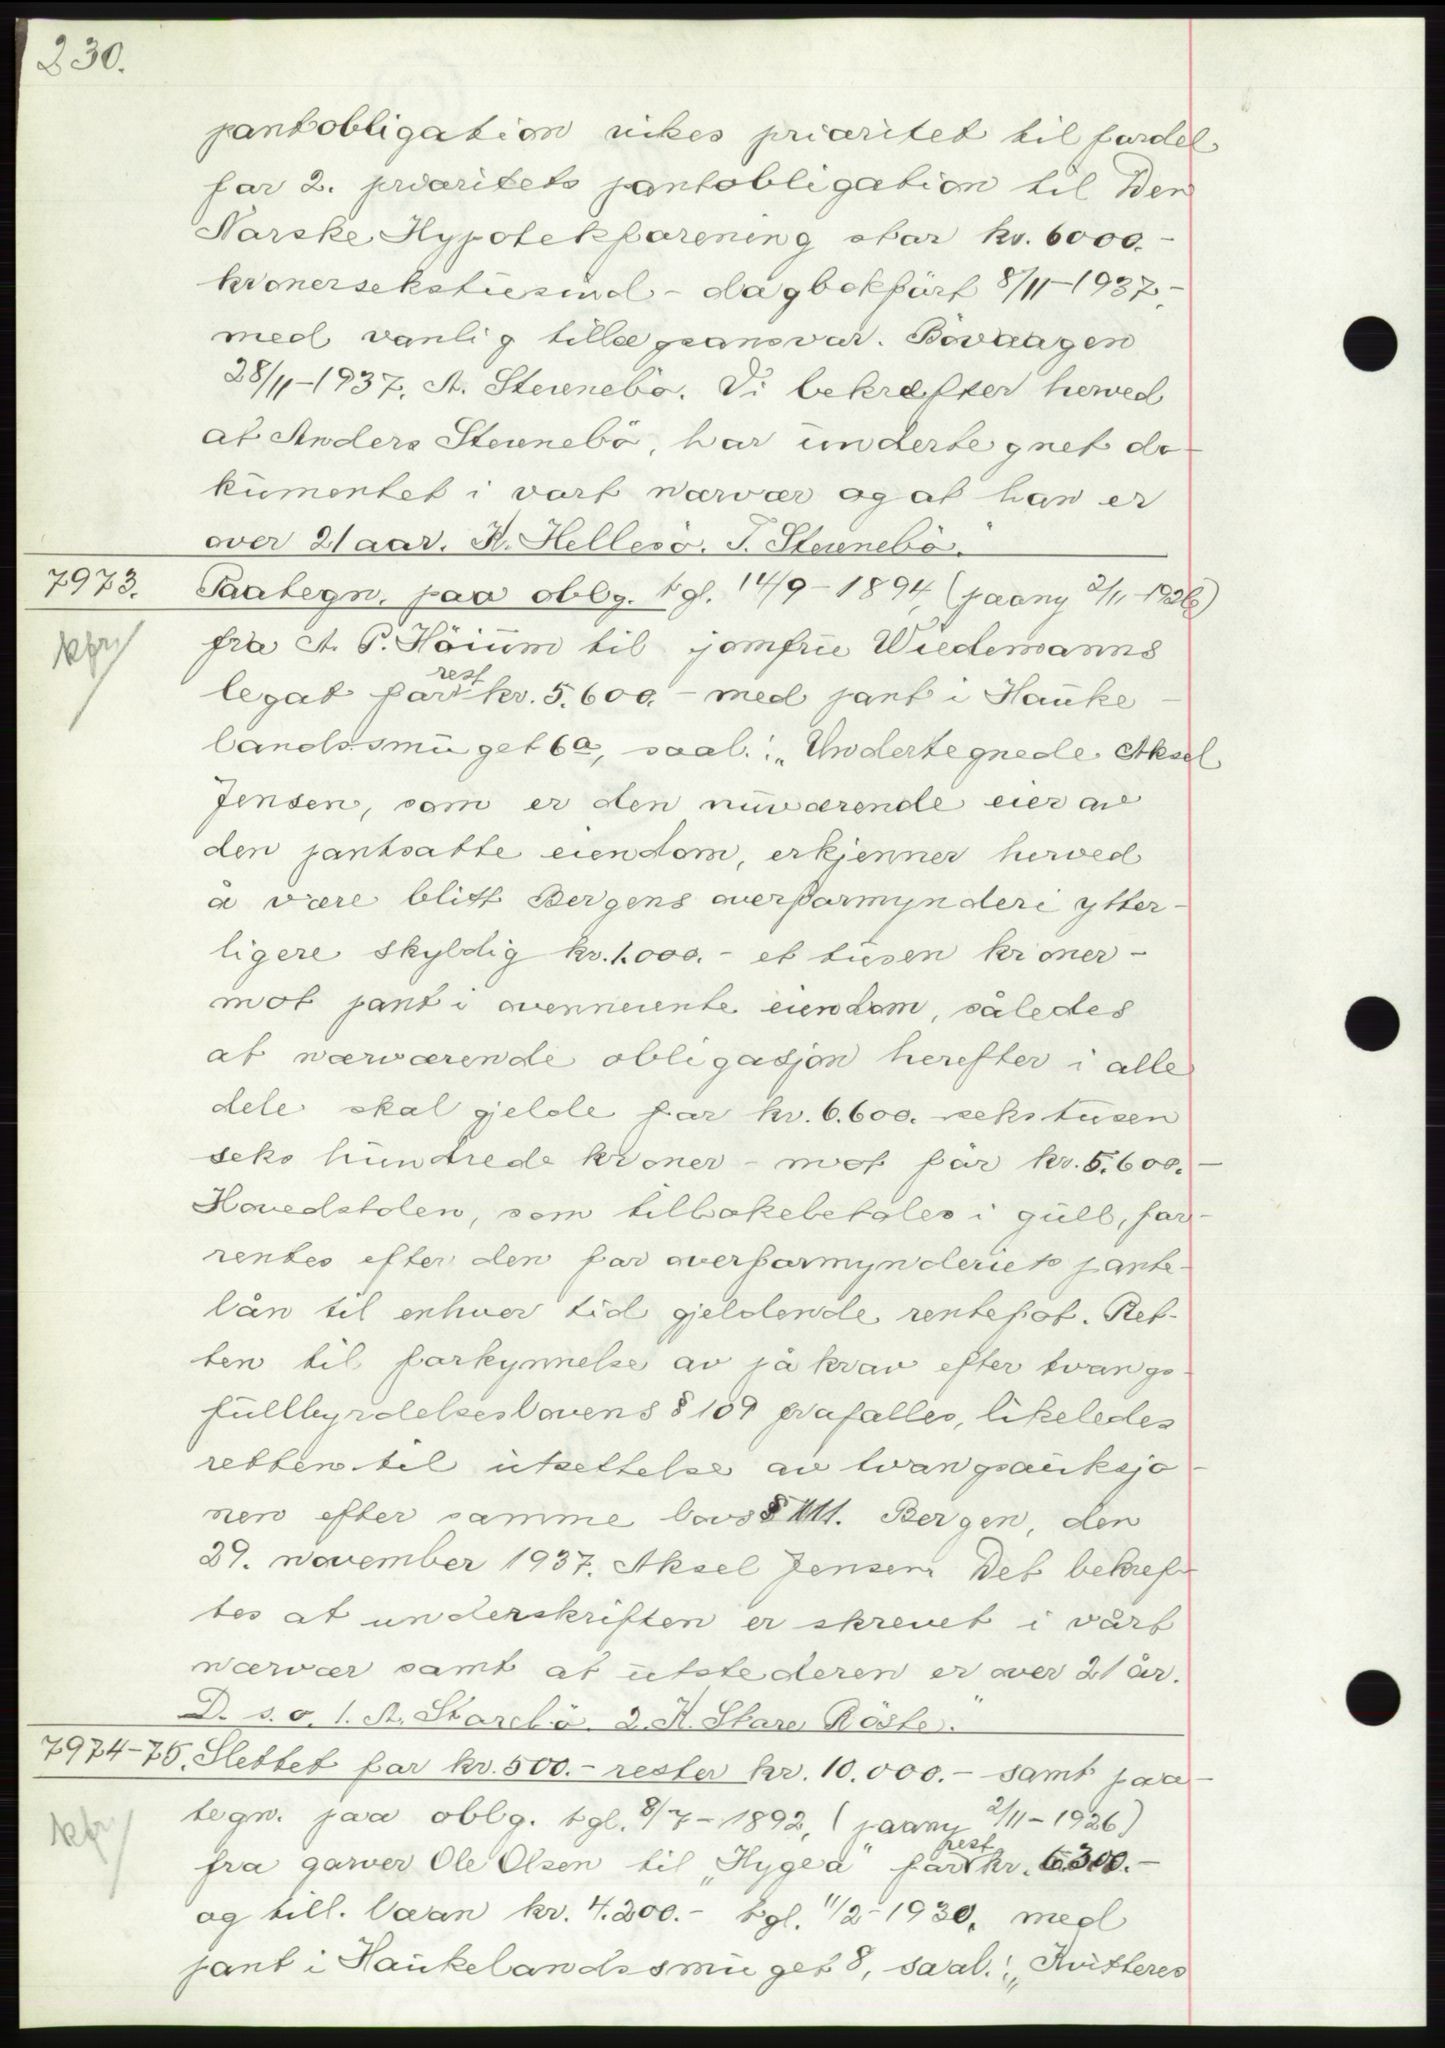 230.
pantobligation vikes prioritet til fordel
for 2. prioritets pantobligation til Den
Norske Hypotekforening stor kr. 6000.-
kronersekstusind - dagbokført 8/11-1937,-
med vanlig tillægsansvar. Bövaagen
28/11-1937. A. Steinebö. Vi bekræfter herved
at Anders Steinebö, har undertegnet do-
kumentet i vort nærvær og at han er
over 21 aar. K. Hellesö. T. Steinebö."
7973. Paategn. paa oblg. tgl. 14/9-1894, (paany 2/11-1926)
kfr
fra A. P. Höium til jomfru Wiedemanns
legat for rest kr. 5.600.- med pant i Hauke-
landssmuget 6a, saal.: „Undertegnede Aksel
Jensen, som er den nuværende eier av
den pantsatte eiendom, erkjenner herved
å være blitt Bergens overformynderi ytter-
ligere skyldig kr. 1.000.- et tusen kroner -
mot pant i ovennevnte eiendom, således
at nærværende obligasjon herefter i alle
dele skal gjelde for kr. 6.600. sekstusen
seks hundrede kroner - mot før kr. 5.600.-
Hovedstolen, som tilbakebetales i gull, for-
rentes efter den for overformynderiets pante-
lån til enhver tid gjeldende rentefot. Ret-
ten til forkynnelse av påkrav efter tvangs-
fullbyrdelseslovens § 109 frafalles, likeledes
retten til utsettelse av tvangsauksjo-
nen efter samme lovs § 111. Bergen, den
29. november 1937. Aksel Jensen. Det bekref-
tes at underskriften er skrevet i vårt
nærvær samt at utstederen er over 21 år.
D. s. o. 1. A. Starebö. 2. K. Stare Röste."
7974-75. Slettet for kr. 500.- rester kr. 10.000.- samt paa-
kfr
tegn. paa oblg. tgl. 8/7-1892, (paany 2/11-1926)
fra garver Ole Olsen til „Hygea" for rest kr. 6.300.-
og till. laan kr. 4.200.- tgl. 11/2-1930, med
pant i Haukelandssmuget 8, saal.: „Kvitteres